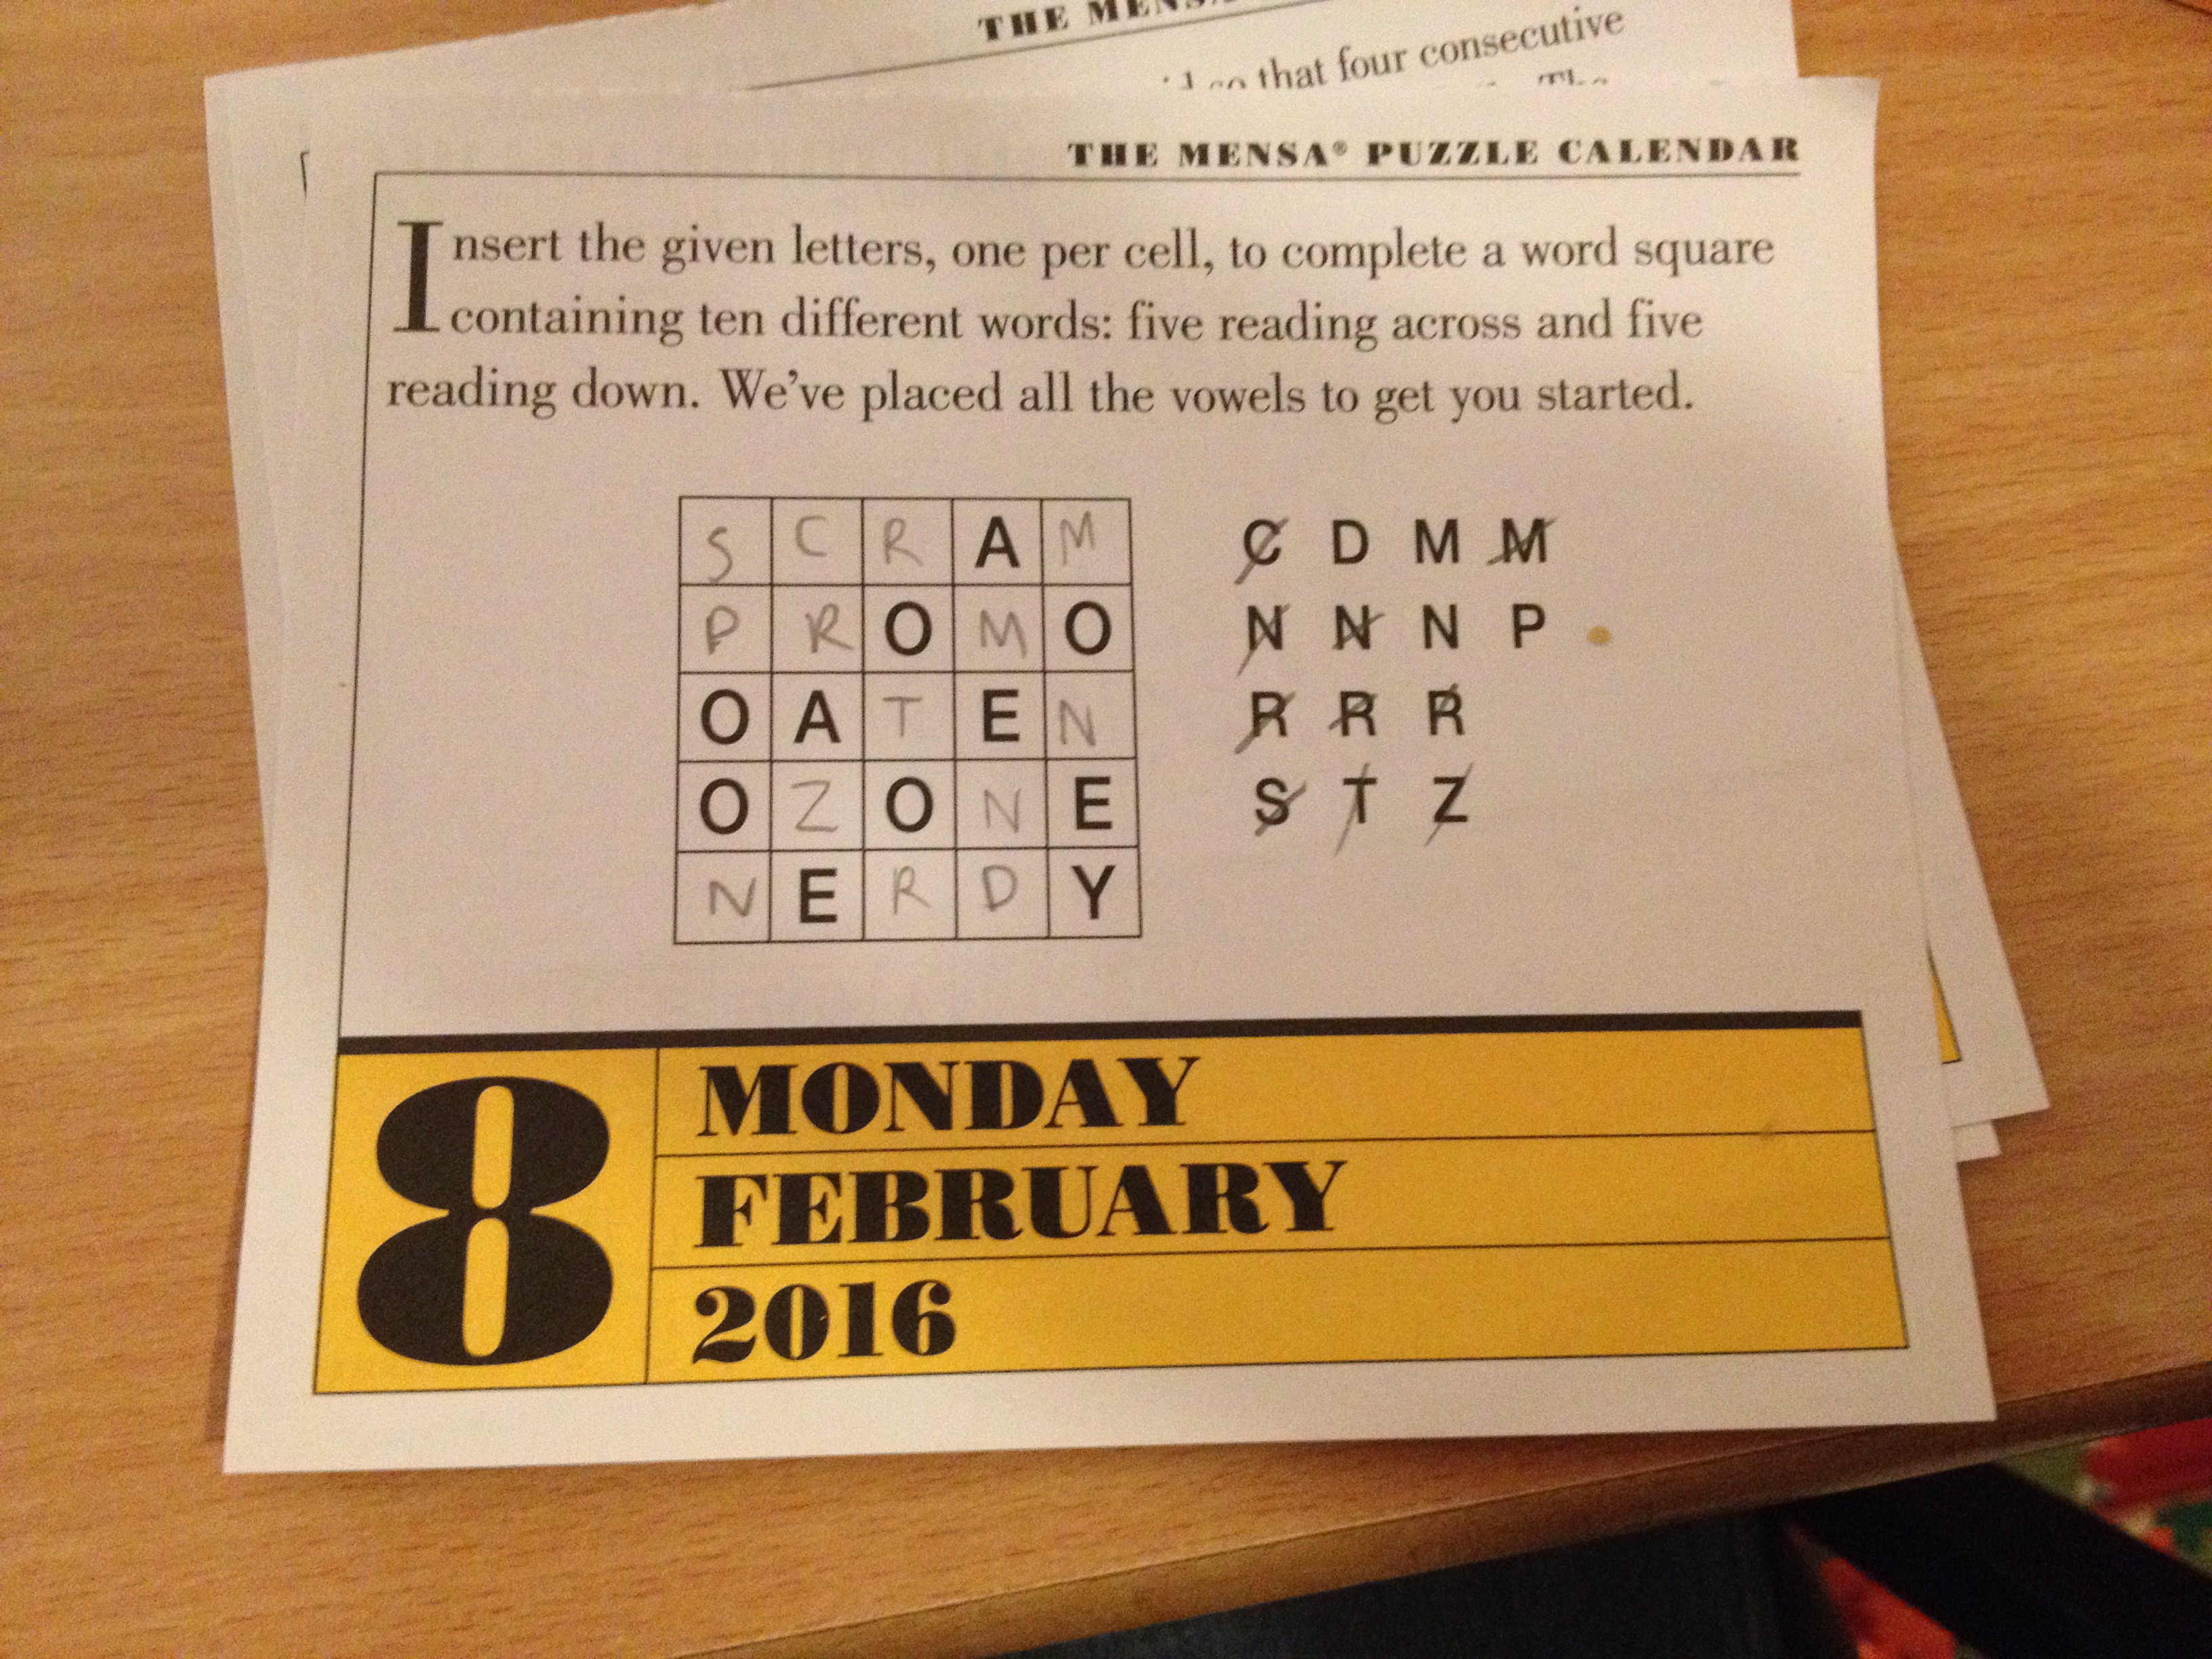 THE MENSA
so that four consecutive
THE MENSA® PUZZLE CALENDAR
Insert the given letters, one per cell, to complete a word square
containing ten different words: five reading across and five
reading down. We've placed all the vowels to get you started.
S C R A M C D M M
P R O M O N N N P
O A T E N R R R
O Z O N E S T Z
N E R D Y
8 MONDAY
FEBRUARY
2016